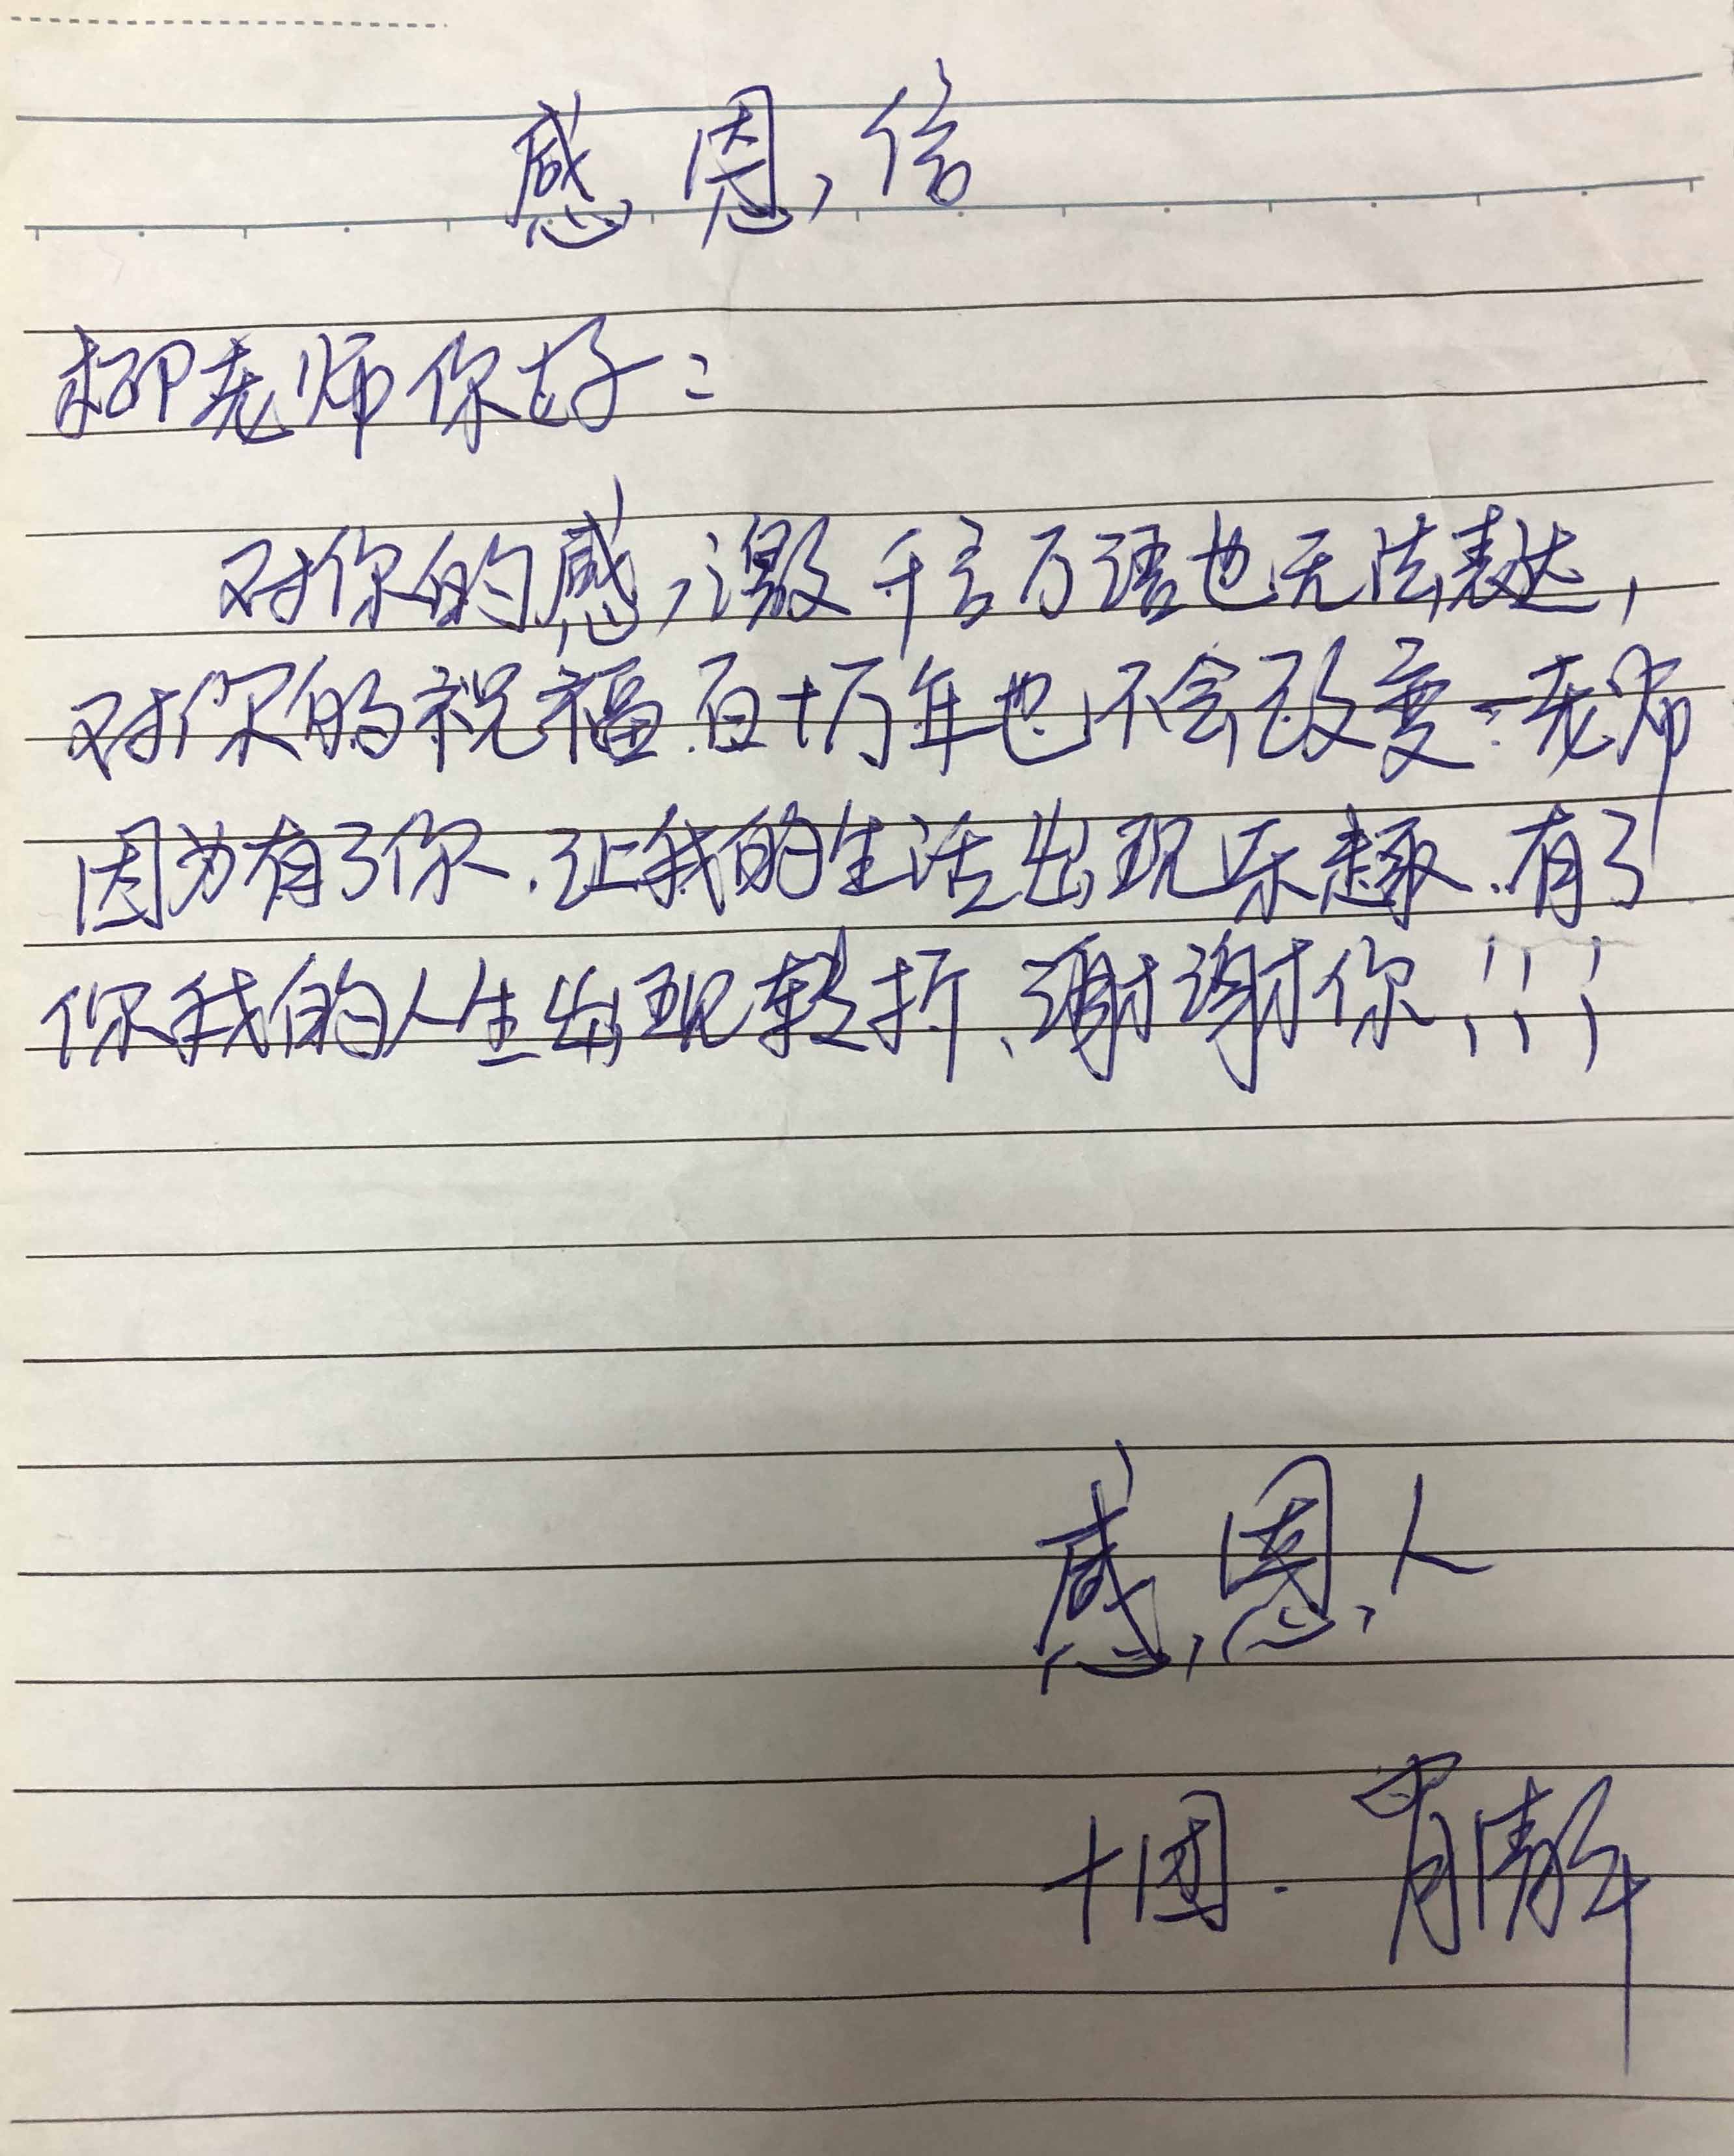 感恩信
柳老师你好：
对你的感激千言万语也无法表达，
对你的祝福.百十万年也不会改变：老师
因为有了你.让我的生活出现乐趣.有了
你我的人生出现转折、谢谢你！！！
感恩人
十团.